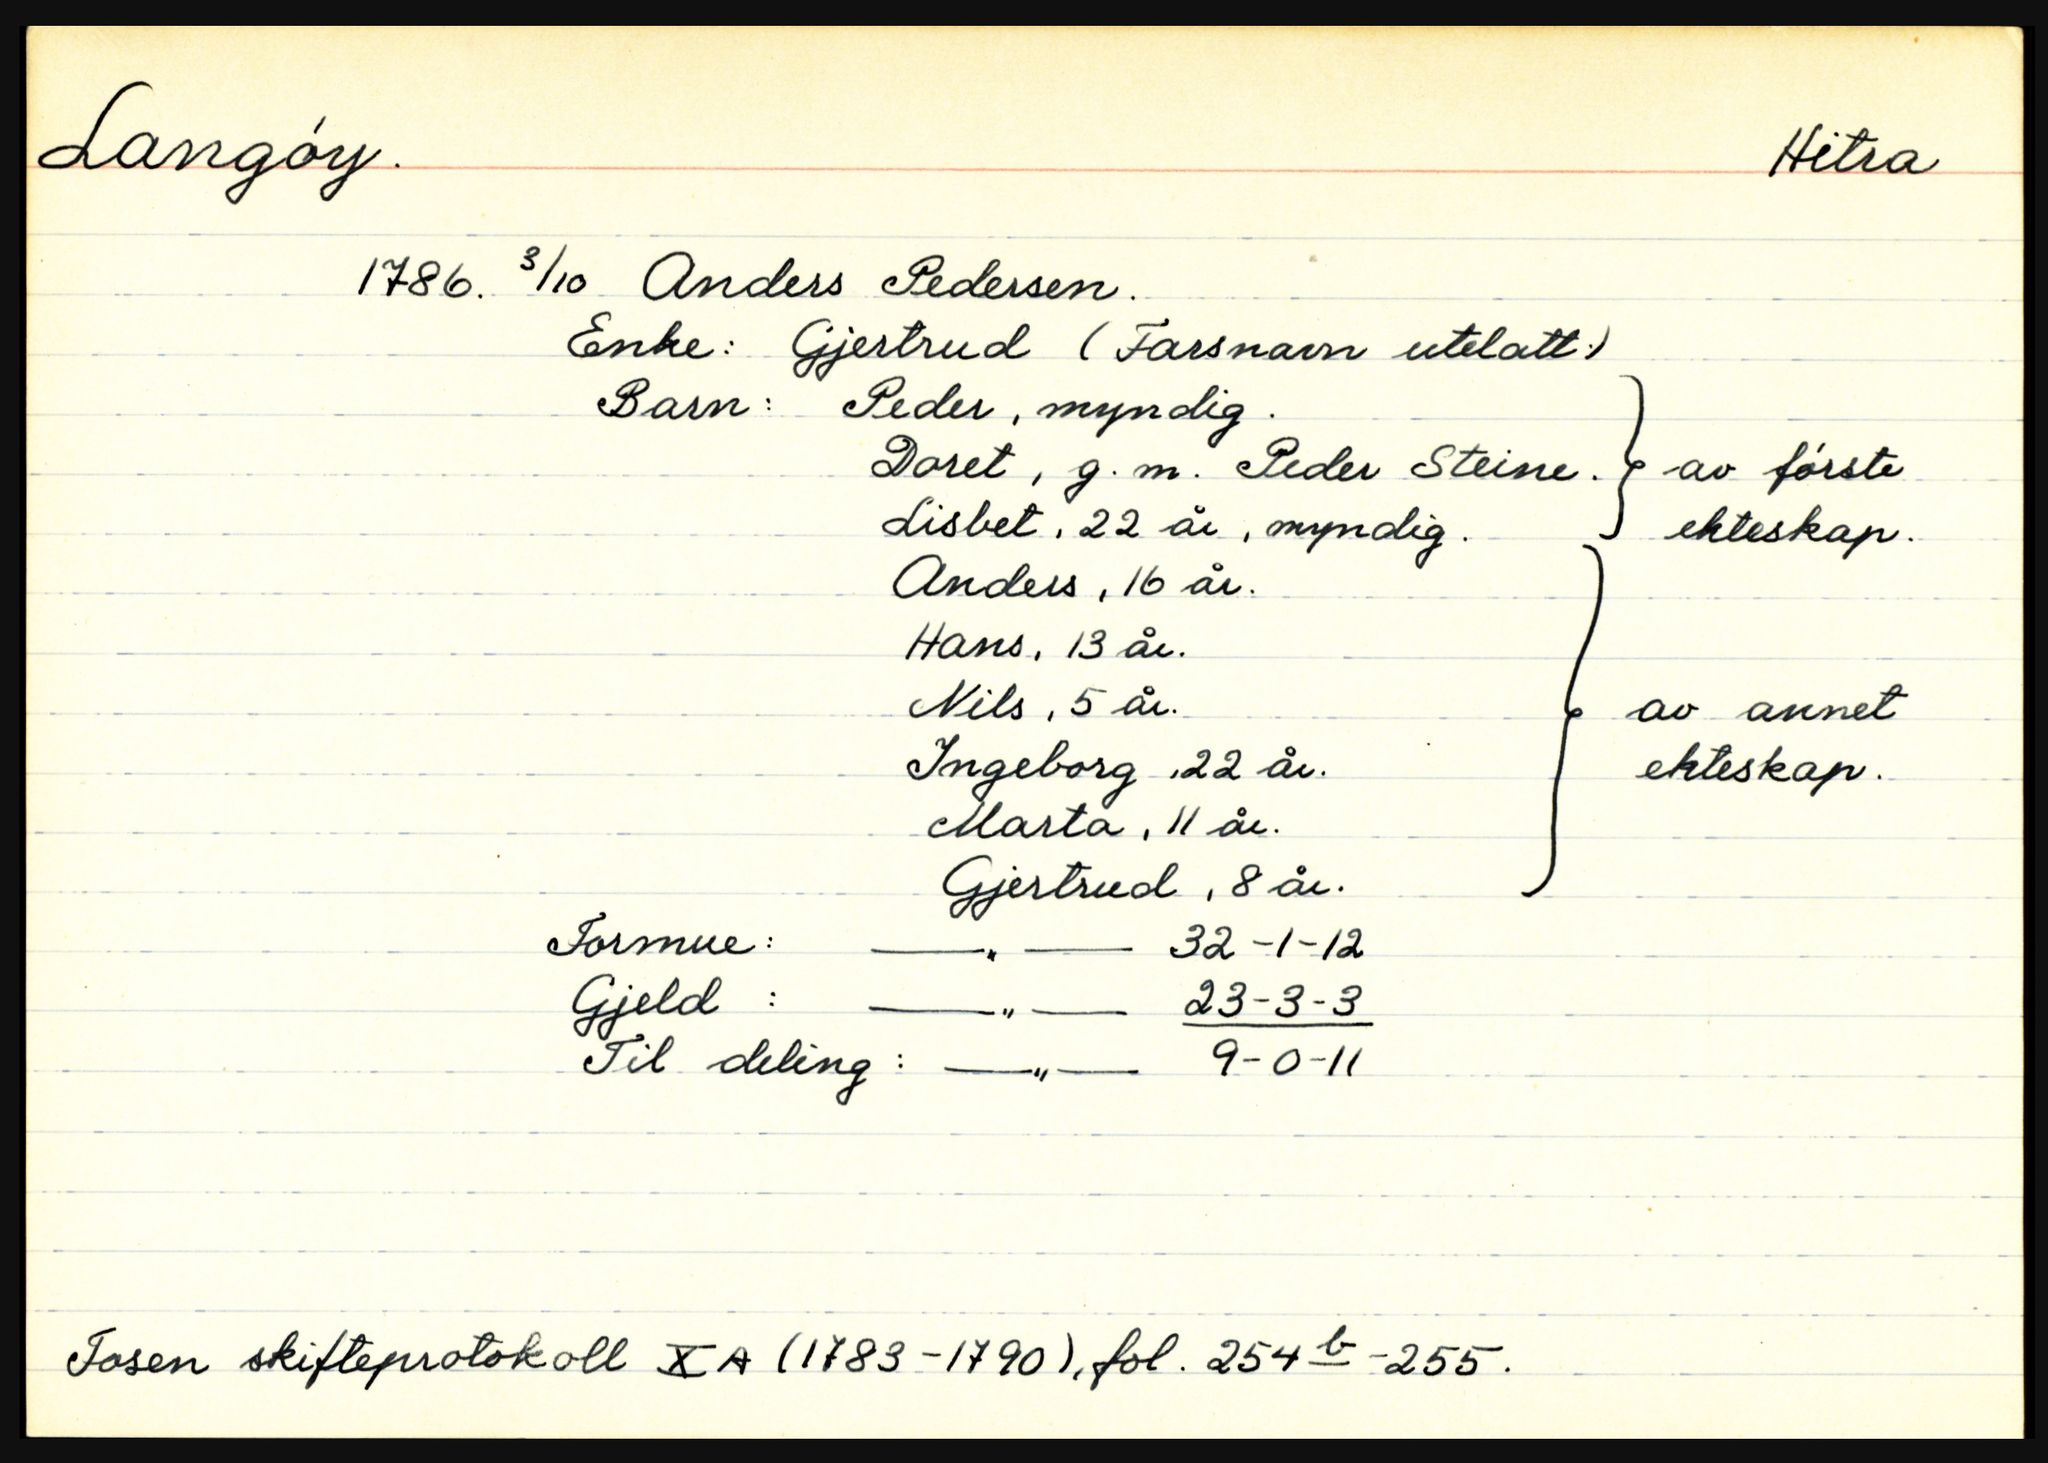 Langóy. Hitra
1786. 3/10 Anders Pedersen.
Enke: Gjertrud (Farsnavn utelatt.)
Barn: Peder, myndig.
Doret, g. m. Peder Steine. } av fórste
Lisbet, 22 år, myndig. ekteskap.
Anders, 16 år.
Hans, 13 år.
Nils, 5 år. } av annet
Ingeborg, 22 år. ekteskap.
Marta, 11 år.
Gjertrud, 8 år.
Formue: —„— 32-1-12
Gjeld: —„— 23-3-3
Til deling: —„— 9-0-11
Fosen skifteprotokoll X A (1783-1790), fol. 254 b-255.